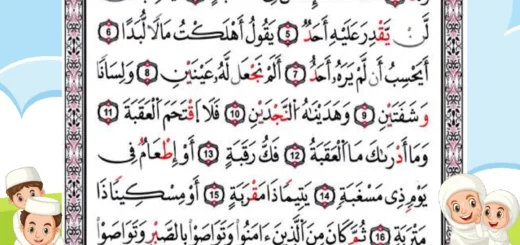 لَّن يَقْدِرَ عَلَيْهِ أَحَدٌ ٥ يَقُولُ أَهْلَكْتُ مَالًا لُّبَدًا ٦
أَيَحْسَبُ أَن لَّمْ يَرَهُۥٓ أَحَدٌ ٧ أَلَمْ نَجْعَل لَّهُۥ عَيْنَيْنِ ٨ وَلِسَانًا
وَشَفَتَيْنِ ٩ وَهَدَيْنَٰهُ ٱلنَّجْدَيْنِ ١٠ فَلَا ٱقْتَحَمَ ٱلْعَقَبَةَ ١١
وَمَآ أَدْرَىٰكَ مَا ٱلْعَقَبَةُ ١٢ فَكُّ رَقَبَةٍ ١٣ أَوْ إِطْعَٰمٌ فِى
يَوْمٍ ذِى مَسْغَبَةٍ ١٤ يَتِيمًا ذَا مَقْرَبَةٍ ١٥ أَوْ مِسْكِينًا ذَا
مَتْرَبَةٍ ١٦ ثُمَّ كَانَ مِنَ ٱلَّذِينَ ءَامَنُوا۟ وَتَوَاصَوْا۟ بِٱلصَّبْرِ وَتَوَاصَوْا۟